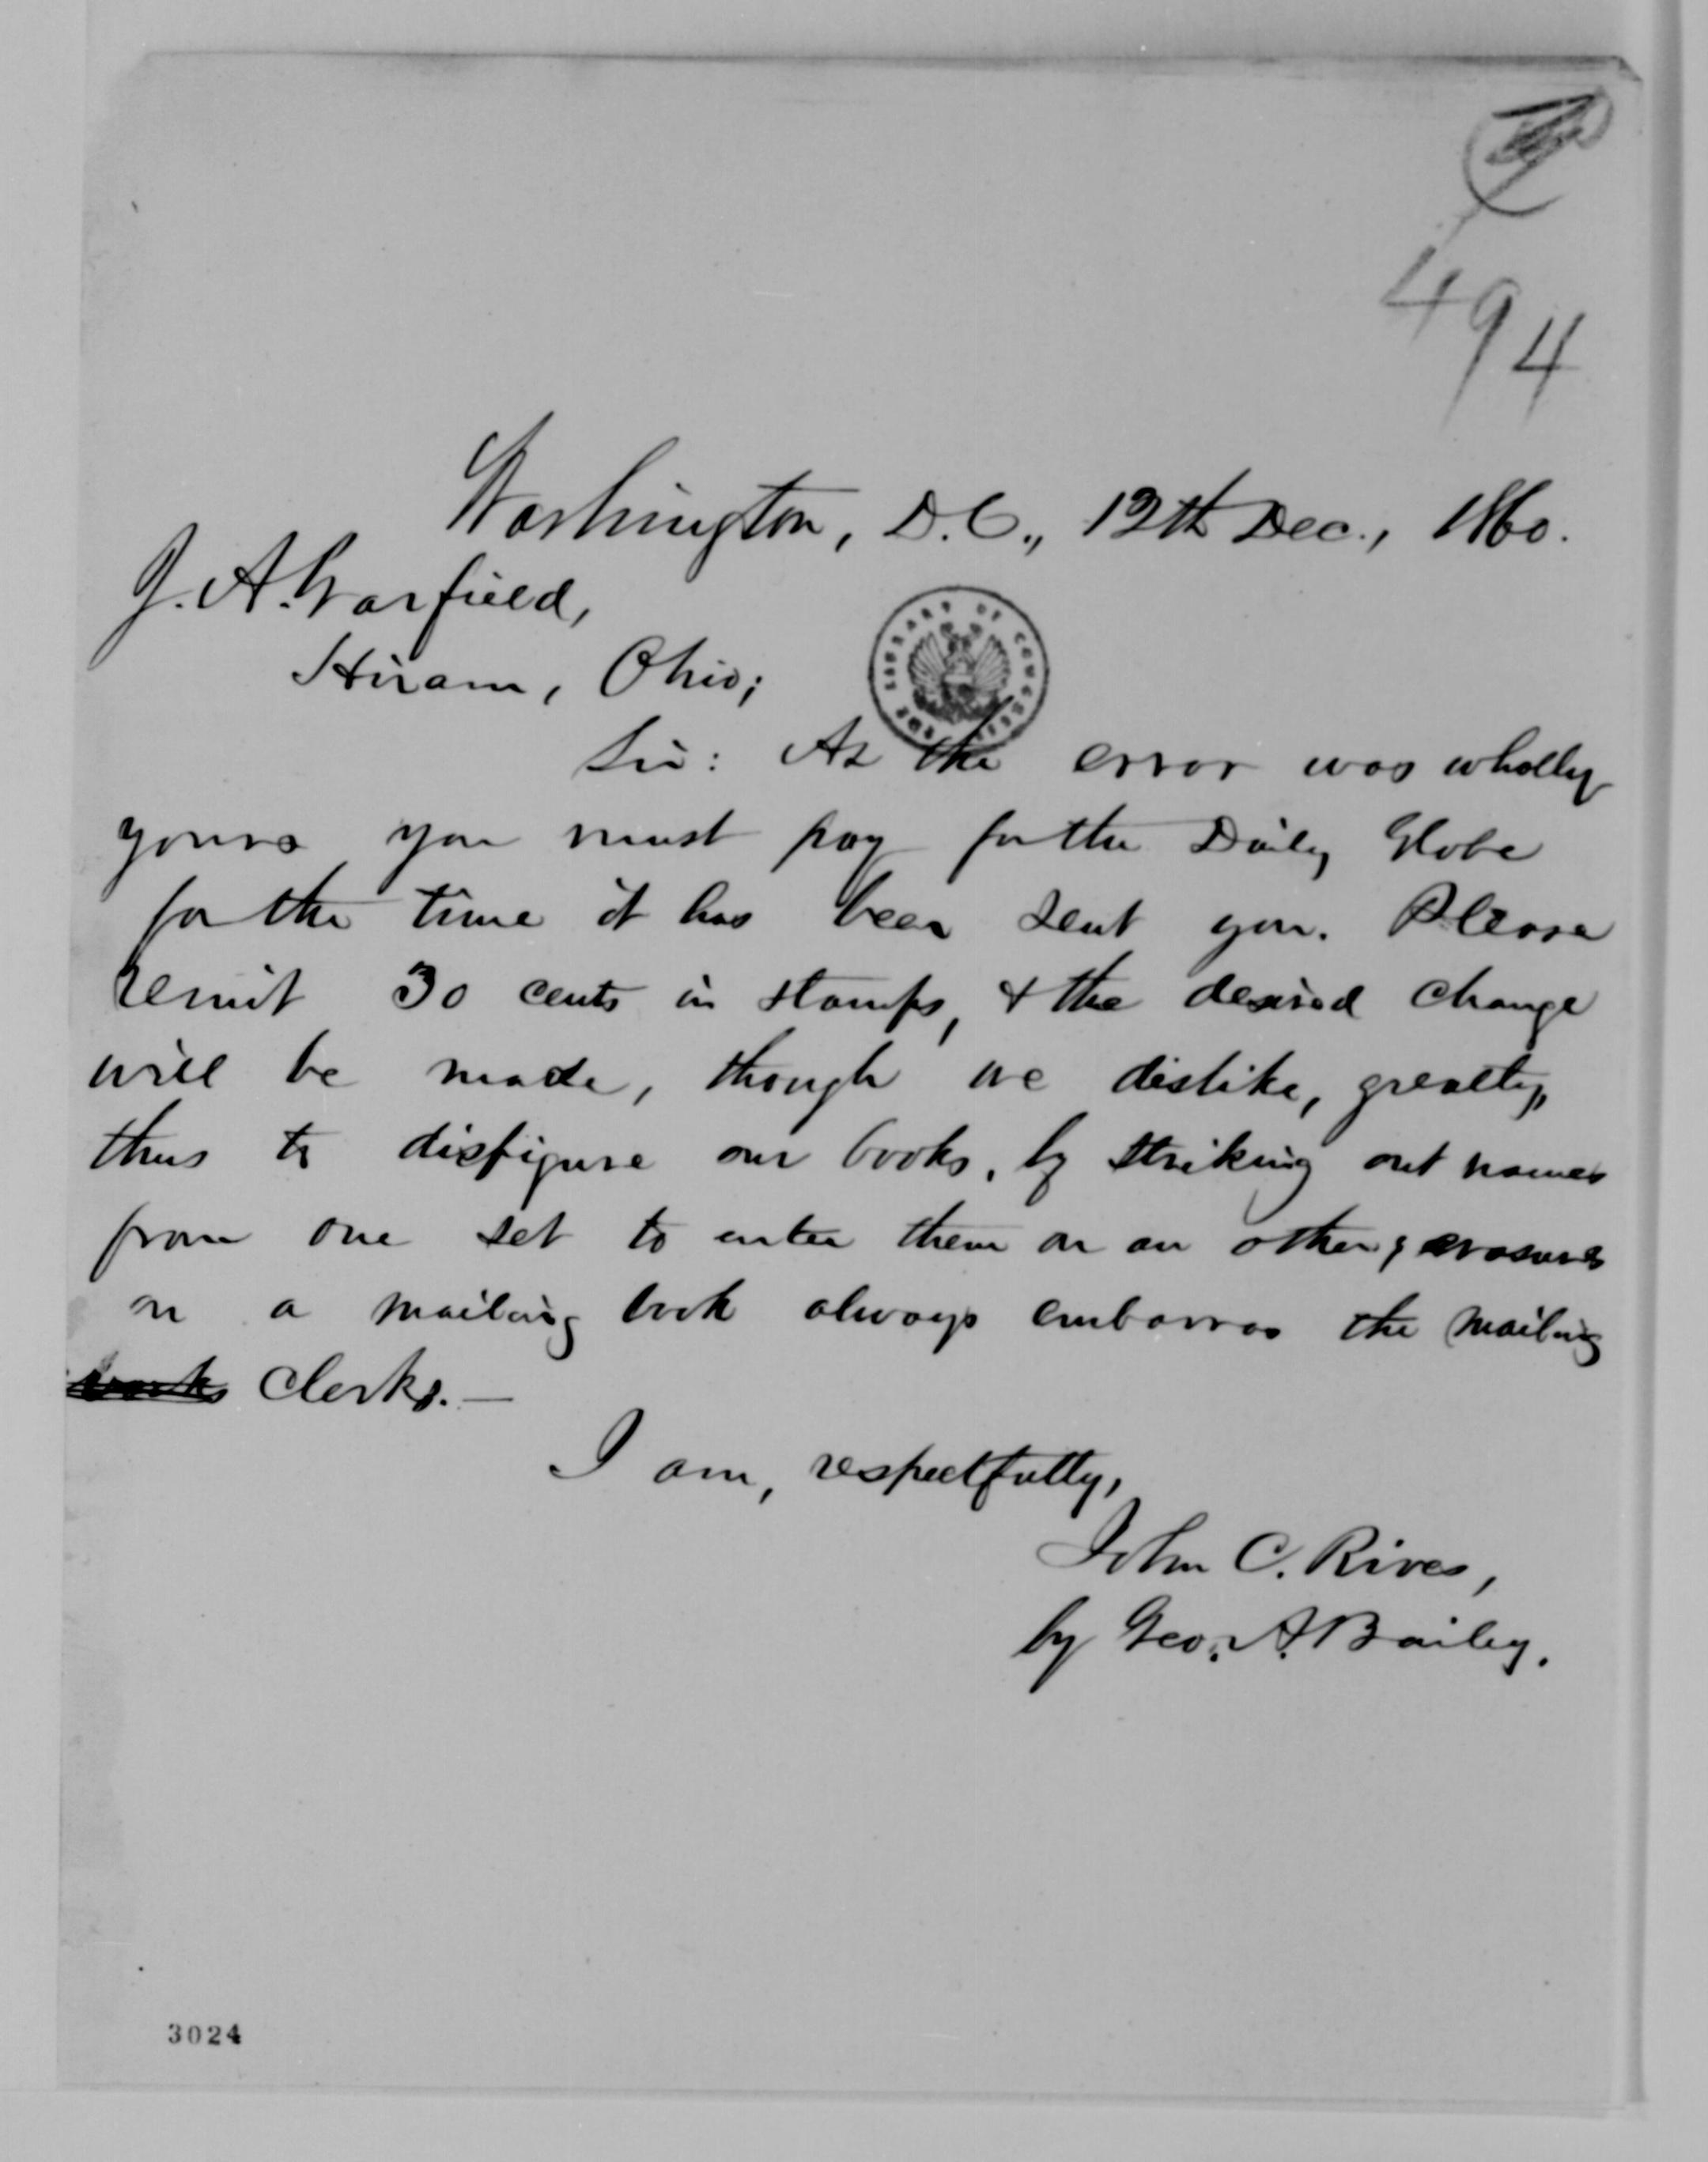 494
Washington, D.C., 12th Dec., 1860.
J. A. Garfield,
Hiram, Ohio;
THE LIBRARY OF CONGRESS
Sir: As the error was wholly
yours you must pay for the Daily Globe
for the time it has been sent you. Please
remit 30 cents in stamps, & the desired change
will be made, though we dislike, greatly,
thus to disfigure our books, by striking out names
from one set to enter them on an other; erasures
on a mailing book always embarras the mailing
Clerks.—
I am, respectfully,
John C. Rives,
by Geo. A. Bailey.
3024